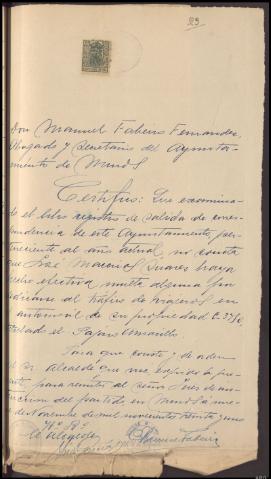 Don Manuel Fabeiro Fernandez
Abogado y Secretario del Ayunta-
miento de
Certifico: Que examina-
do el libro registro de salida de corres-
pondencia de este Ayuntamiento, per-
teneciente al año actual, no consta
que José Moreiras Suarez haya
hecho efectiva multa alguna por
dedicarse al tráfico de viajeros en
automóvil de su propiedad
titulado el Pájaro Amarillo.
Para que conste y de orden
del Sr. alcalde que me expido la pre-
sente para remitir al señor Juez de ins-
trucción del partido en
de Noviembre de mil novecientos treinta y uno
Vº Bº
El Alcalde
Manuel Fabeiro